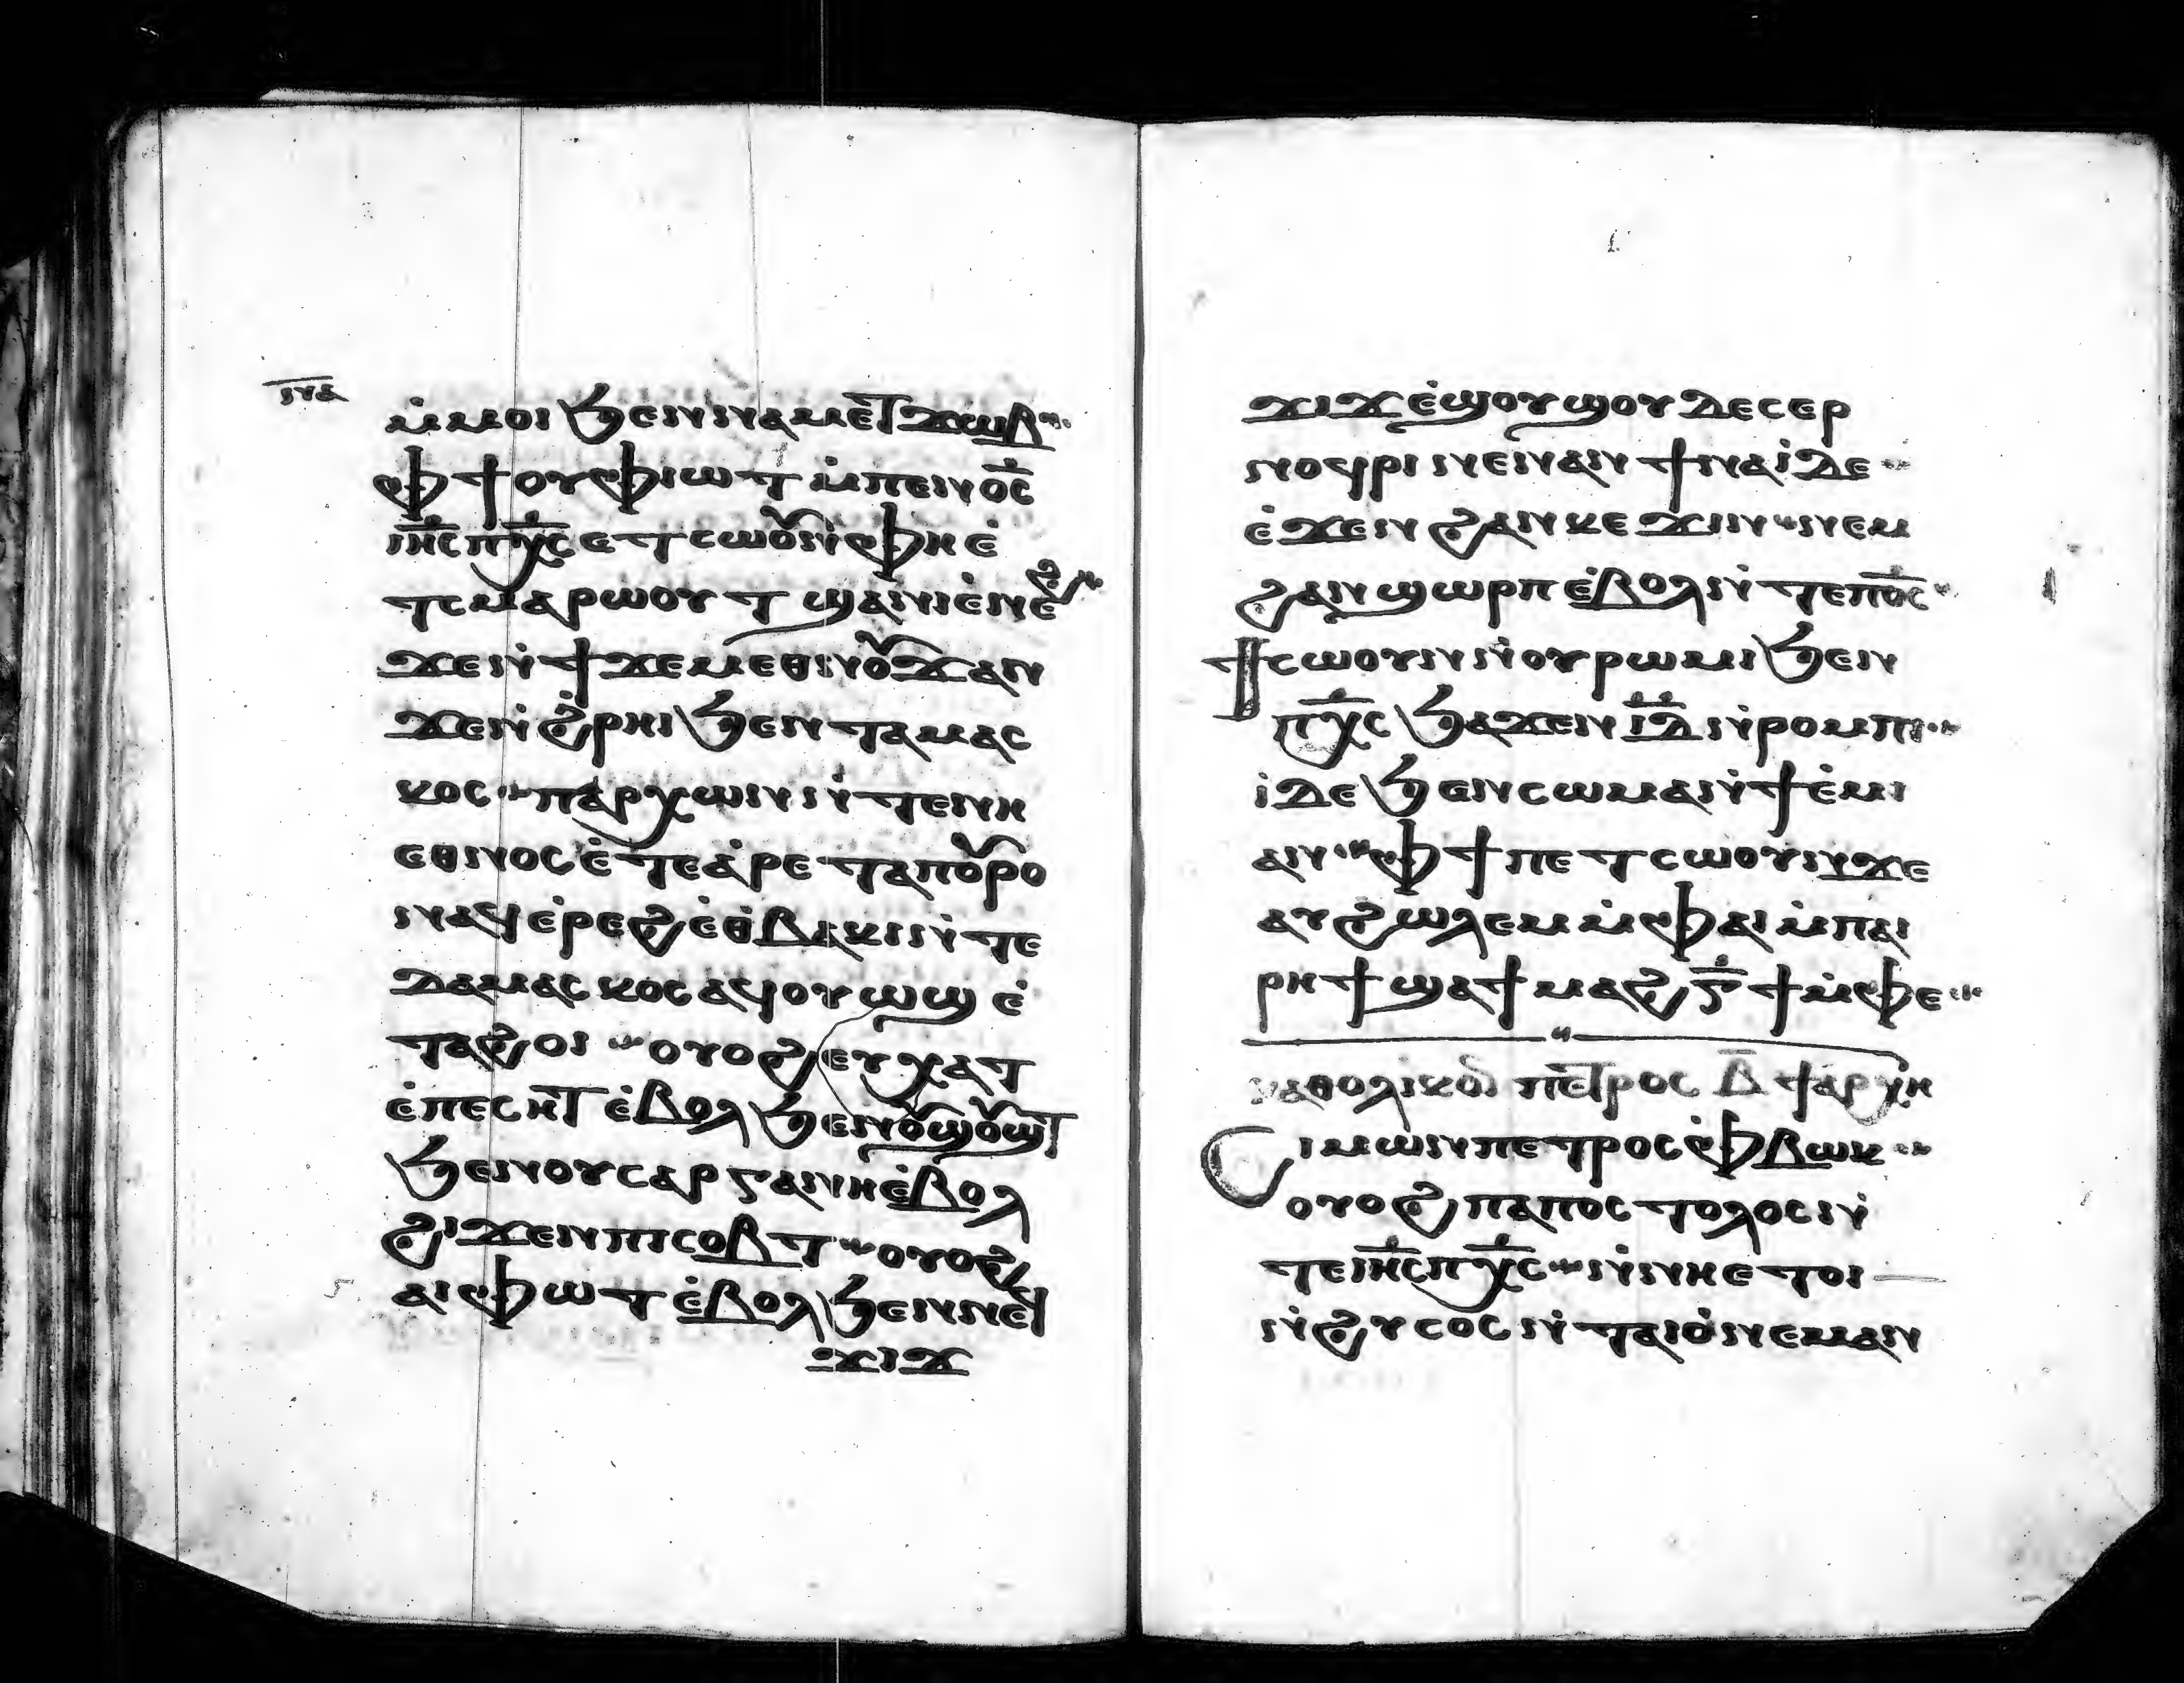 ⲛ̅ⲁ̅
ⲙ̇ⲙⲟⲓ ϧⲉⲛⲛⲁⲙⲉⲧϫⲱⲃ
ⲫϯⲟⲩⲫⲓⲱⲧ ⲙ̇ⲡⲉⲛⲟ̅ⲥ̅
ⲓⲏ̅ⲥ̅ⲡⲭ̅ⲥ̅ⲉⲧⲥⲱⲟⲩⲛ̇ⲫⲏⲉ̇
ⲧⲥⲙⲁⲣⲱⲟⲩⲧ ϣⲁⲛⲓⲉ̇ⲛⲉϩ
ϫⲉⲛ̇ϯϫⲉⲙⲉⲑⲛⲟⲩϫⲁⲛ
ϫⲉⲛ̇ϩ̇ⲣⲏⲓϧⲉⲛⲧⲁⲙⲁⲥ
ⲕⲟⲥ ⲡⲁⲣⲭⲱⲛⲛ̇ⲧⲉⲛⲏ
ⲉⲑⲛⲟⲥⲉ̇ⲧⲉⲁ̇ⲣⲉⲧⲁⲡⲟⲩⲣⲟ
ⲛⲁϥⲉ̇ⲣⲉϩⲉ̇ⲑ̇ⲃⲁⲕⲓⲛ̇ⲧⲉ
ⲇⲁⲙⲁⲥⲕⲟⲥⲁϥⲟⲩⲱϣ ⲉ̇
ⲧⲁϩⲟⲓ ⲟⲩⲟϩⲉⲩⲭⲁⲧ
ⲉ̇ⲡⲉⲥⲏⲧ ⲉ̇ⲃⲟⲗϧⲉⲛⲟⲩϣⲟⲩϣⲧ
ϧⲉⲛⲟⲩⲥⲁⲣⲅⲁⲛⲏⲉ̇ⲃⲟⲗ
ϩⲓϫⲉⲛⲡⲓⲥⲟⲃⲧ ⲟⲩⲟϩ
ⲁⲓⲫⲱⲧⲉ̇ⲃⲟⲗϧⲉⲛⲛⲉϥ
ϫⲓϫ
ϫⲓϫⲉ̇ϣⲟⲩϣⲟⲩⲇⲉⲥⲉⲣ
ⲛⲟϥⲣⲓⲛⲉⲛⲁⲛϯⲛⲁⲓ̇ⲇⲉ
ⲉ̇ϫⲉⲛϩⲁⲛⲕⲉϫⲓⲛ ⲛⲉⲙ
ϩⲁⲛϣⲱⲣⲡⲉ̇ⲃⲟⲗⲛ̇ⲧⲉⲡⲟ̅ⲥ̅
ϯⲥⲱⲟⲩⲛⲛ̇ⲟⲩⲣⲱⲙⲓϧⲉⲛ
ⲡⲭ̅ⲥ̅ϧⲁϫⲉⲛⲓ̅ⲇ̅ⲛ̇ⲣⲟⲙⲡⲓ
ⲓ̇ⲇⲉϧⲉⲛⲥⲱⲙⲁⲛ̇ϯⲉ̇ⲙⲓ
ⲁⲛ ⲫϯⲡⲉⲧⲥⲱⲟⲩⲛϫⲉ
ⲁⲩϩⲱⲗⲉⲙⲙ̇ⲫⲁⲓⲙ̇ⲡⲁⲓ
ⲣⲏϯϣⲁϯⲙⲁϩⲅ̅ϯⲙ̇ⲫⲉ
ⲕⲁⲑⲟⲗⲓⲕⲟⲛ ⲡⲉⲧⲣⲟⲥ ⲃ̅ ϯⲁⲣⲭⲏ
Ⲥⲓⲙⲱⲛⲡⲉⲧⲣⲟⲥⲫ̇ⲃⲱⲕ
ⲟⲩⲟϩⲡⲁⲡⲟⲥⲧⲟⲗⲟⲥⲛ̇
ⲧⲉⲓⲏ̅ⲥ̅ⲡⲭ̅ⲥ̅ ⲛ̇ⲛⲏⲉⲧⲟⲓ
ⲛ̇ϩⲩⲥⲟⲥⲛ̇ⲧⲁⲓⲟ̇ⲛⲉⲙⲁⲛ